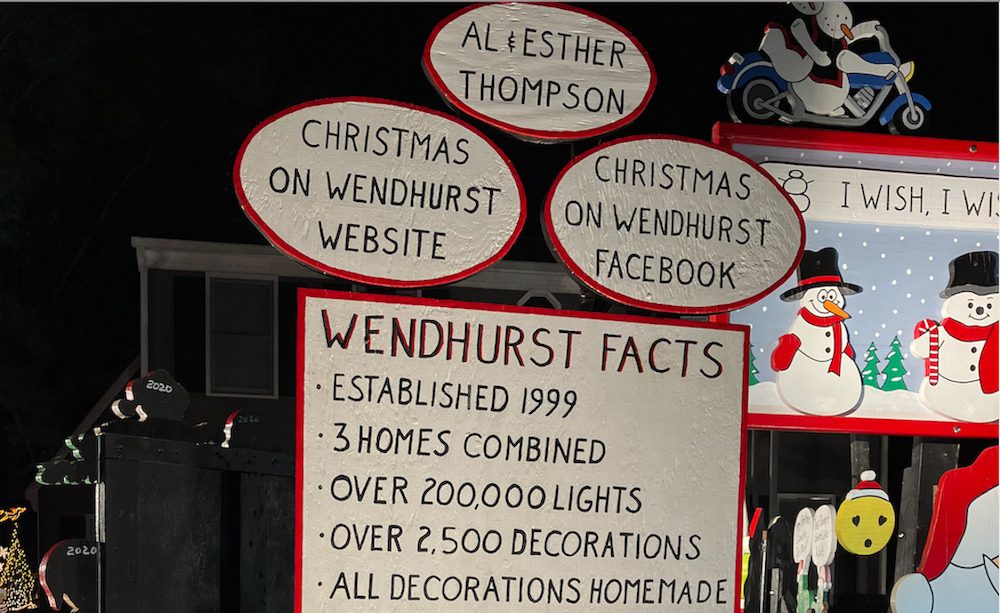 AL & ESTHER
THOMPSON
CHRISTMAS
ON WENDHURST
WEBSITE
CHRISTMAS
ON WENDHURST
FACEBOOK
I WISH, I WIS
WENDHURST FACTS
· ESTABLISHED 1999
· 3 HOMES COMBINED
· OVER 200,000 LIGHTS
· OVER 2,500 DECORATIONS
· ALL DECORATIONS HOMEMADE
2020
2020
2020